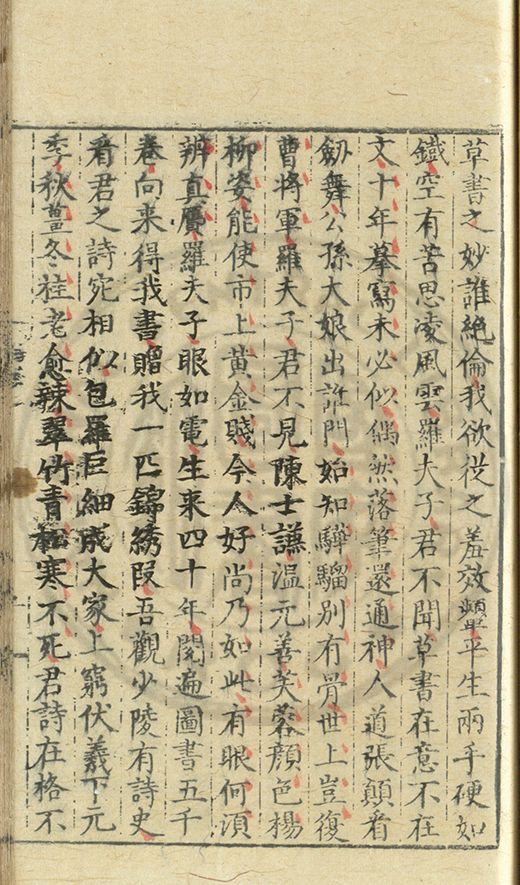 草書之妙誰絶倫我欲從之羞效顰平生兩手硬如
鐵空有苦思凌風雲羅夫子君不聞草書在意不在
文十年摹寫未必似偶然落筆還通神人道張顛看
劔舞公孫大娘出誰門始知驊騮别有骨世上豈復
曹將軍羅夫子君不見陳士謙温元善芙蓉顔色楊
柳姿能使市上黄金賤今人好尚乃如此有眼何湏
辨真贋羅夫子眼如電生来四十年閱遍圖書五千
卷向来得我書贈我一匹錦綉叚吾觀少陵有詩史
看君之詩宛相似包羅巨細成大家上窮伏羲下元
季秋薑冬桂老愈辣翠竹青松寒不死君詩在格不